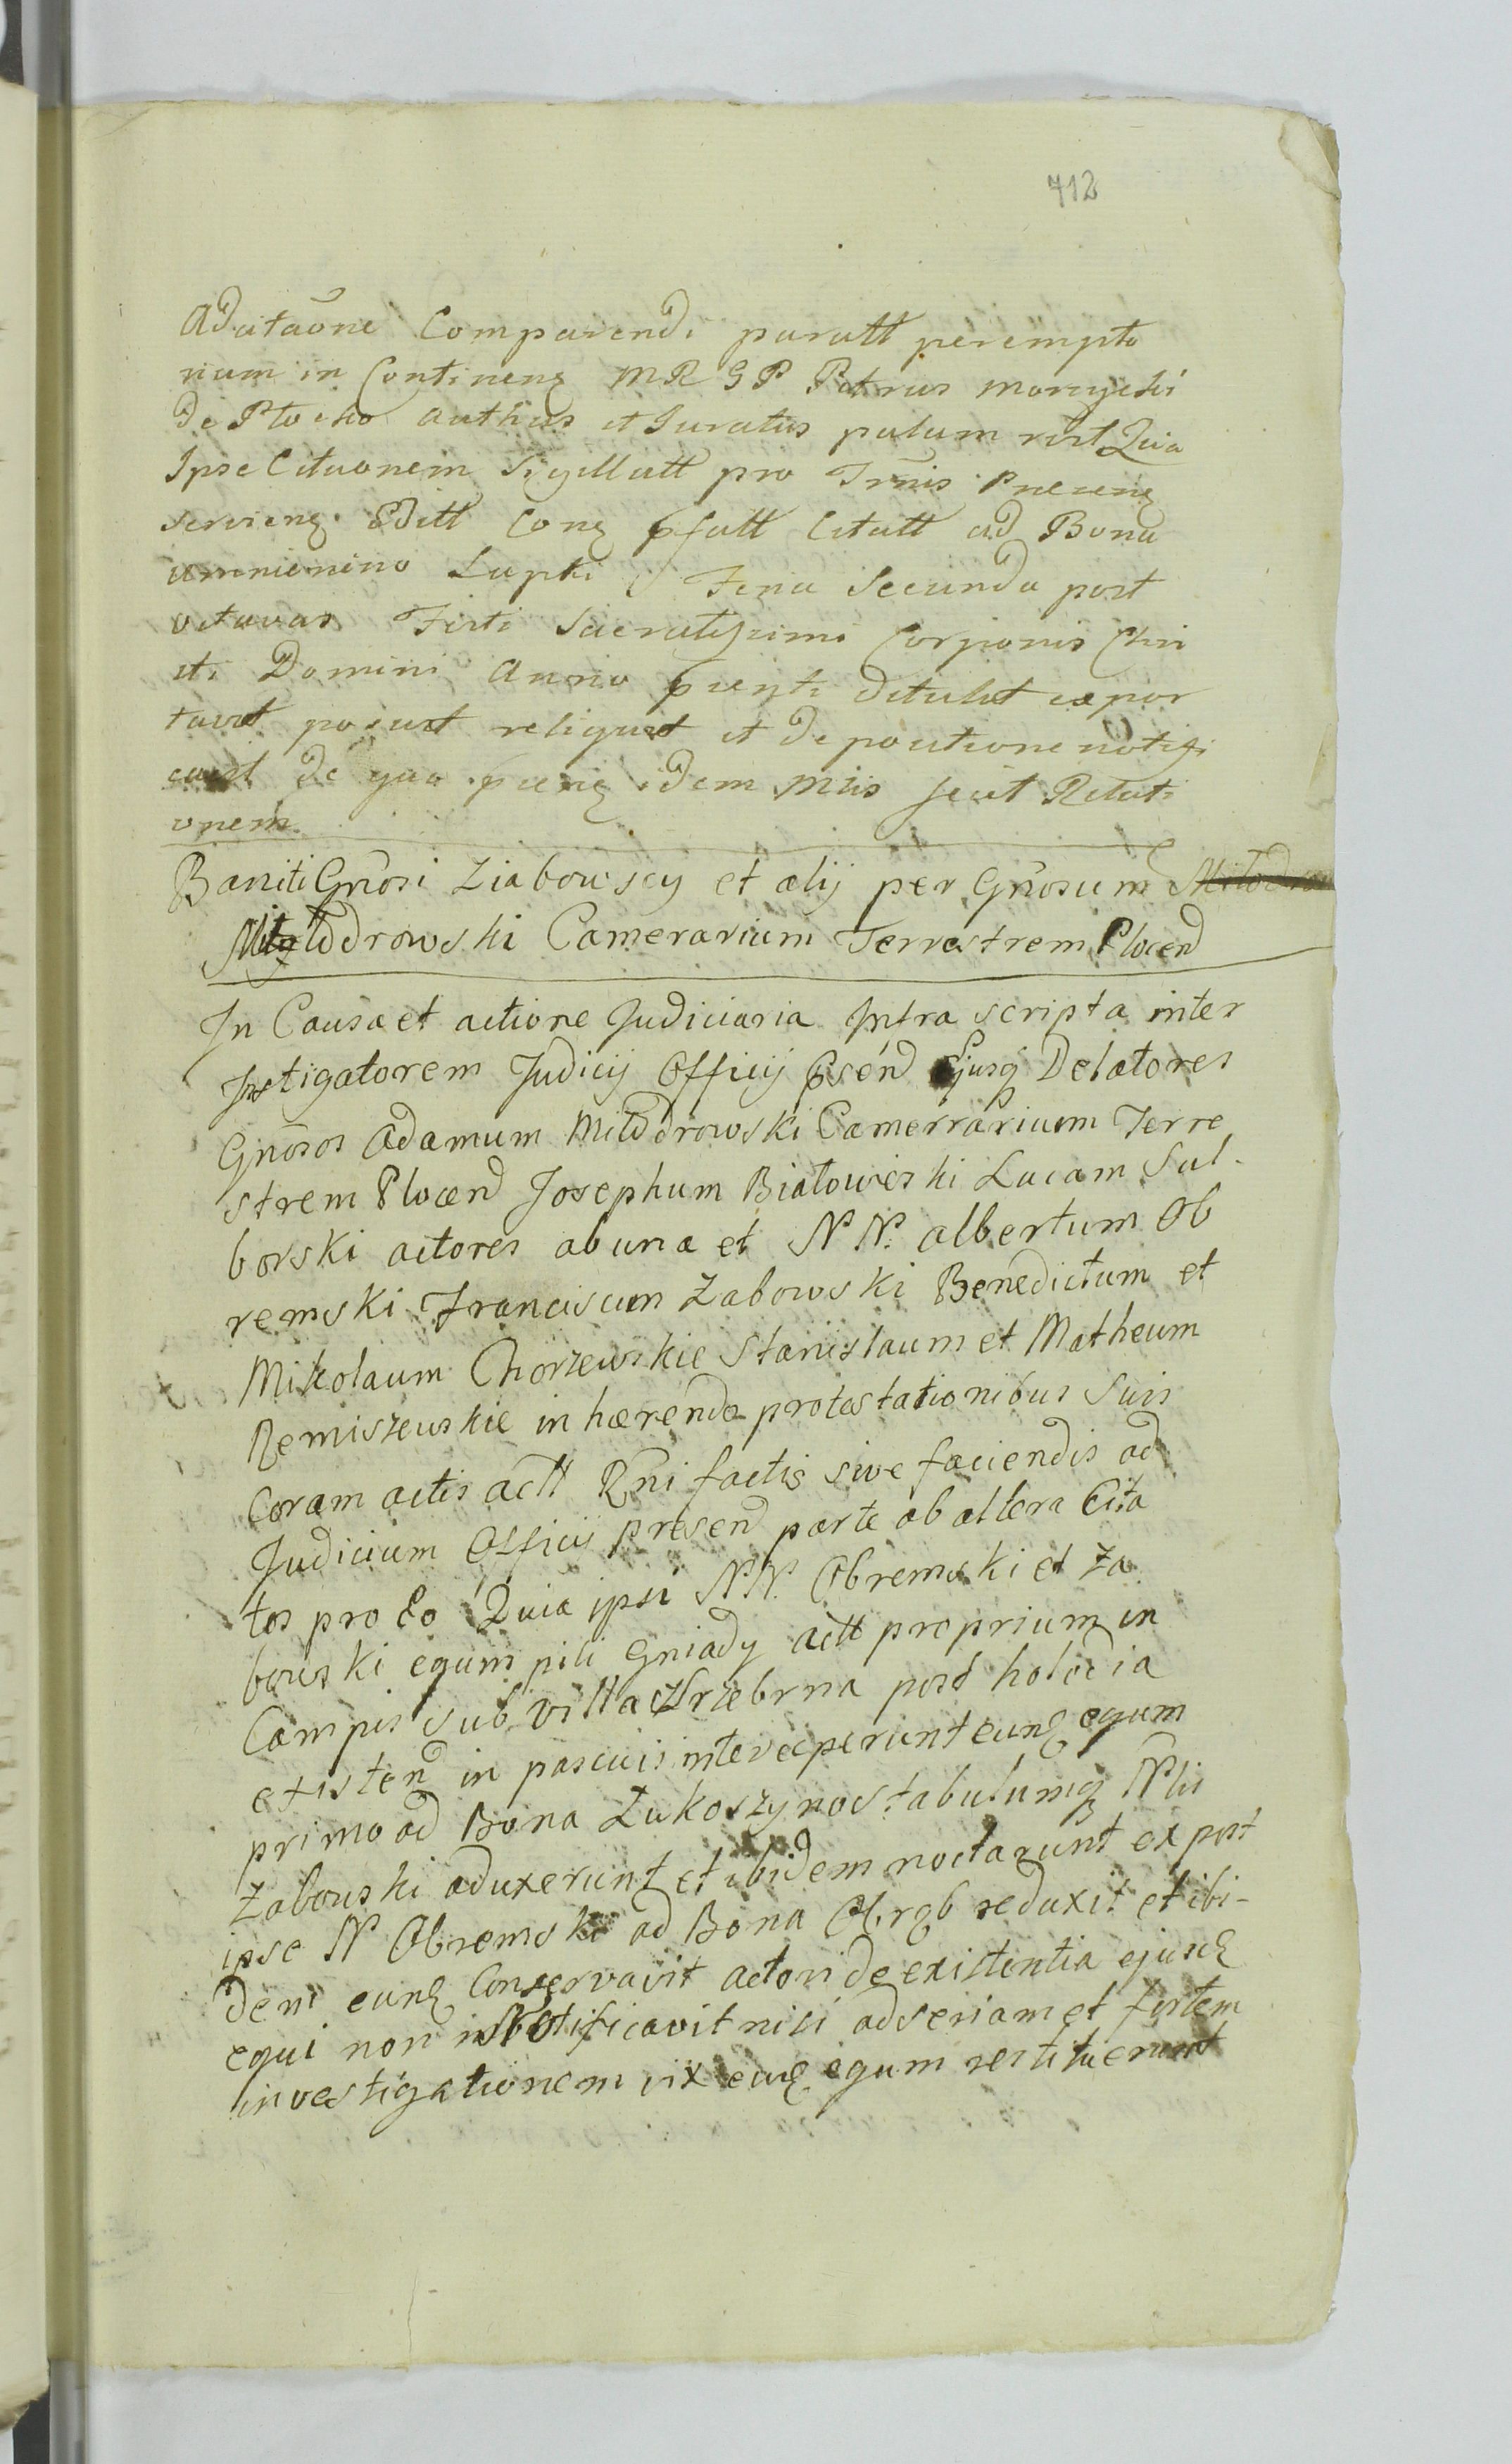 712
Adcitaōne Comparendi paratt perempto
rium in Contineng MR GP Petrus Morychi
De Płocko authus et Juratus palum rest Quia
Ipse Citaonem Sigillatt pro Trnis Preceng
servieng Editt Cong pfatt Citatt ad Bona
omnienino Lupki Feria Secunda post
octavas Festi Sacratissimi Corporis Chri
sti Domini Anno pnti detulit expor
tavit posuit reliquit et de positione notifi
cavit de quo pneng idem Mlis fecit Relati
onem
Baniti Gn̄osi Ziabowscy et alij per Gn̄osum Miłodro
Miłodrowski Camerarium Terrestrem Plocen̄
In Causa et actione Judiciaria Infra scripta inter
Instigatorem Judicij Officij Psen̄ Ejusq Delatores
Gn̄osos Adamum Miłodrowski Camerrarium Terre
strem Plocen̄ Josephum Białowieski Lucam Sul-
borski actores ab una et N N. albertum Ob
remski Franciscum Zabowski Benedictum et
Mikolaum Chorzewskie Stanislaum et Matheum
Remiszewskie in hærendo protestationibus suis
Coram actis actt Rn̄i factis sive faciendis ad
Judicium Officij presen̄ parte ab altera Cita
tos pro Eo Quia ipsi NN. Obremski et Za
bowski equm pili Gniady actt proprium in
Campis sub Villa Srebrna pord holoc̄ia
existen̄ in pascuis interceperunt eunq equm
primo ad Bona Lukoszyno stabulumq Nlis
Zabowski aduxerunt et ibidem noctarunt ex post
ipse N Obremski ad Bona Obrąb reduxit et ibi-
dem eunq Conservavit actori de existentia ejusq
equi non notificavit nisi ad seriam et fortem
investigationem vix eunq equm restituerunt